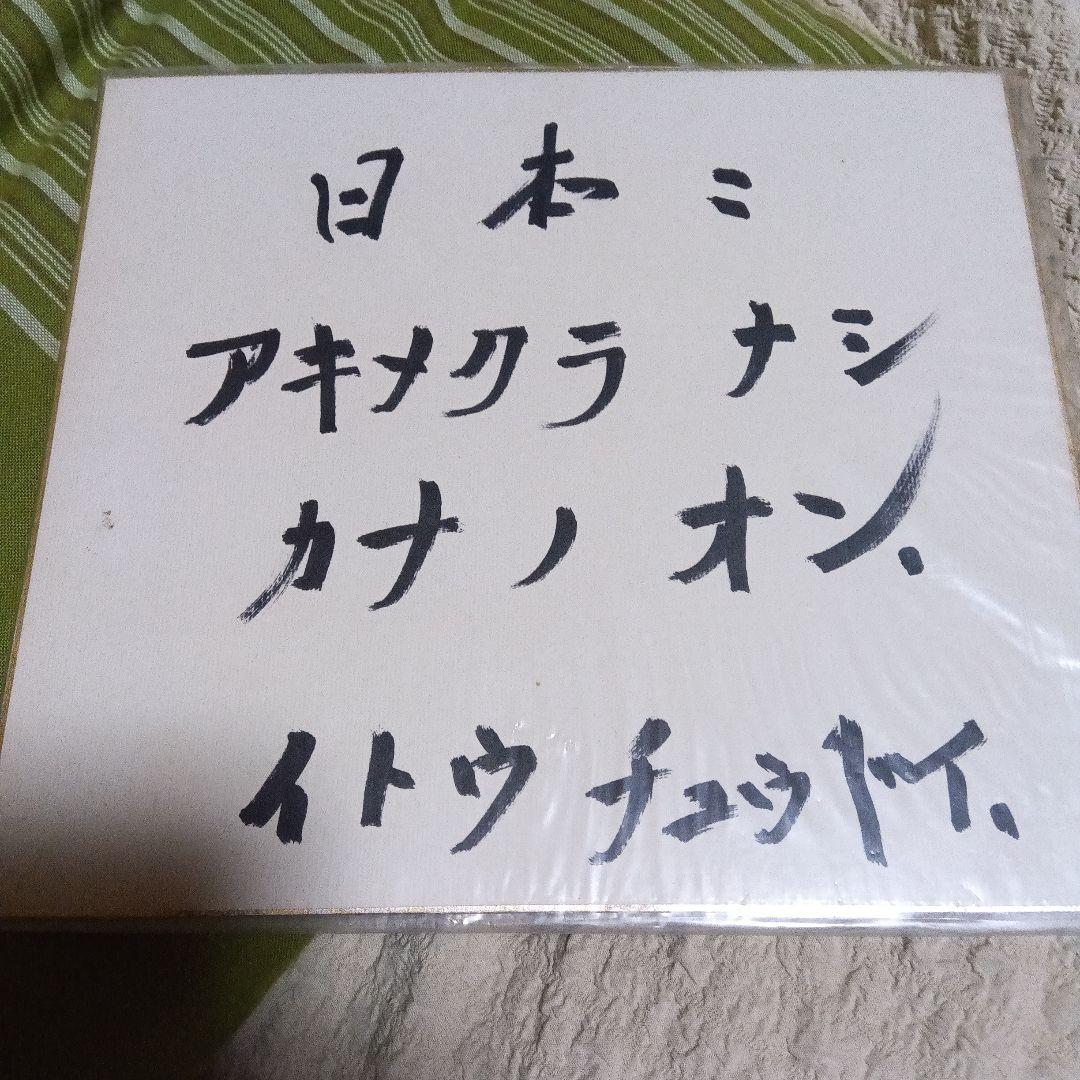 日本ニ
アキメクラ ナシ
カナノ オン.
イトウ チュウドイ.